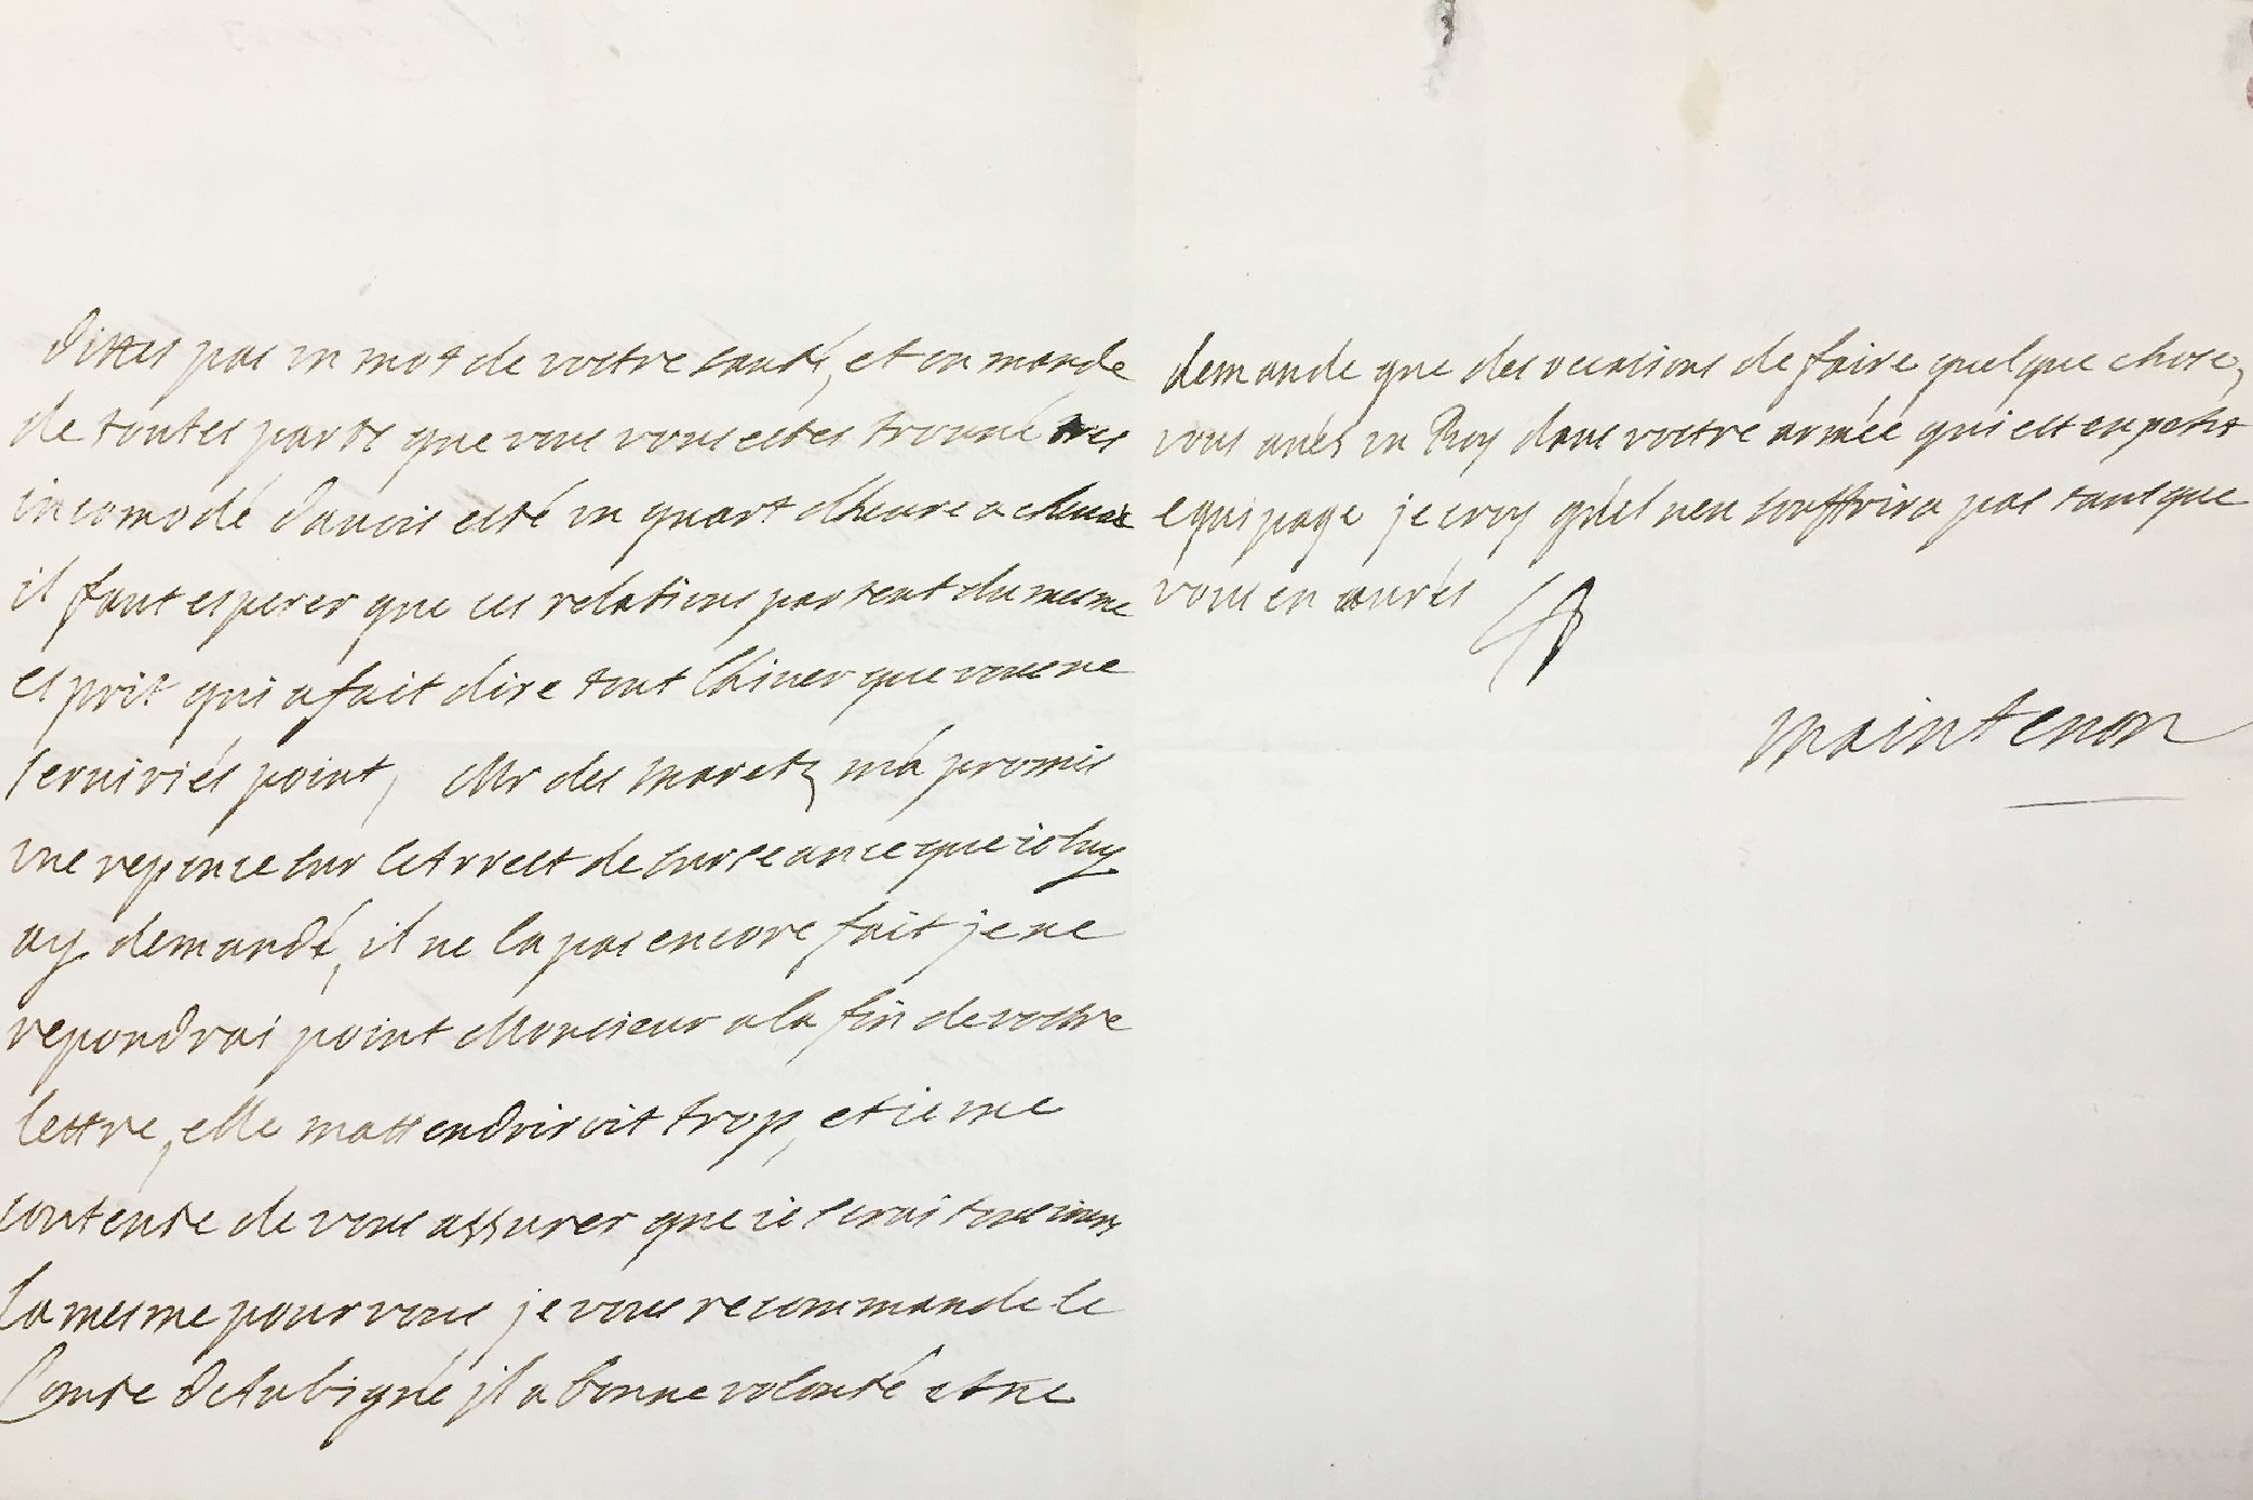 dittes pas un mot de vostre santé, et on mande
de toutes parts que vous vous estes trouué tres
incomodé d'auoir esté un quart d'heure a cheual
il faut esperer que ces relations partent du mesme
esprit qui a fait dire tout lhiuer que vous ne
seruiriés point, Mr des maretz m'a promis
une reponce sur l'Arrest de surseance que ie luy
ay demandé, il ne la pas encore fait je ne
repondrai point Monsieur a la fin de vostre
lettre, elle mattendriroit trop, et ie me
contente de vous assurer que ie serai tousiours
la mesme pour vous je vous recommande le
Comte d'Aubigné jl a bonne volonté et ne
demande que des occasions de faire quelque chose,
vous aués un Roy dans vostre armée qui est en petit
equipage je croy qu'il nen souffrira pas tant que
vous en aurés
maintenon